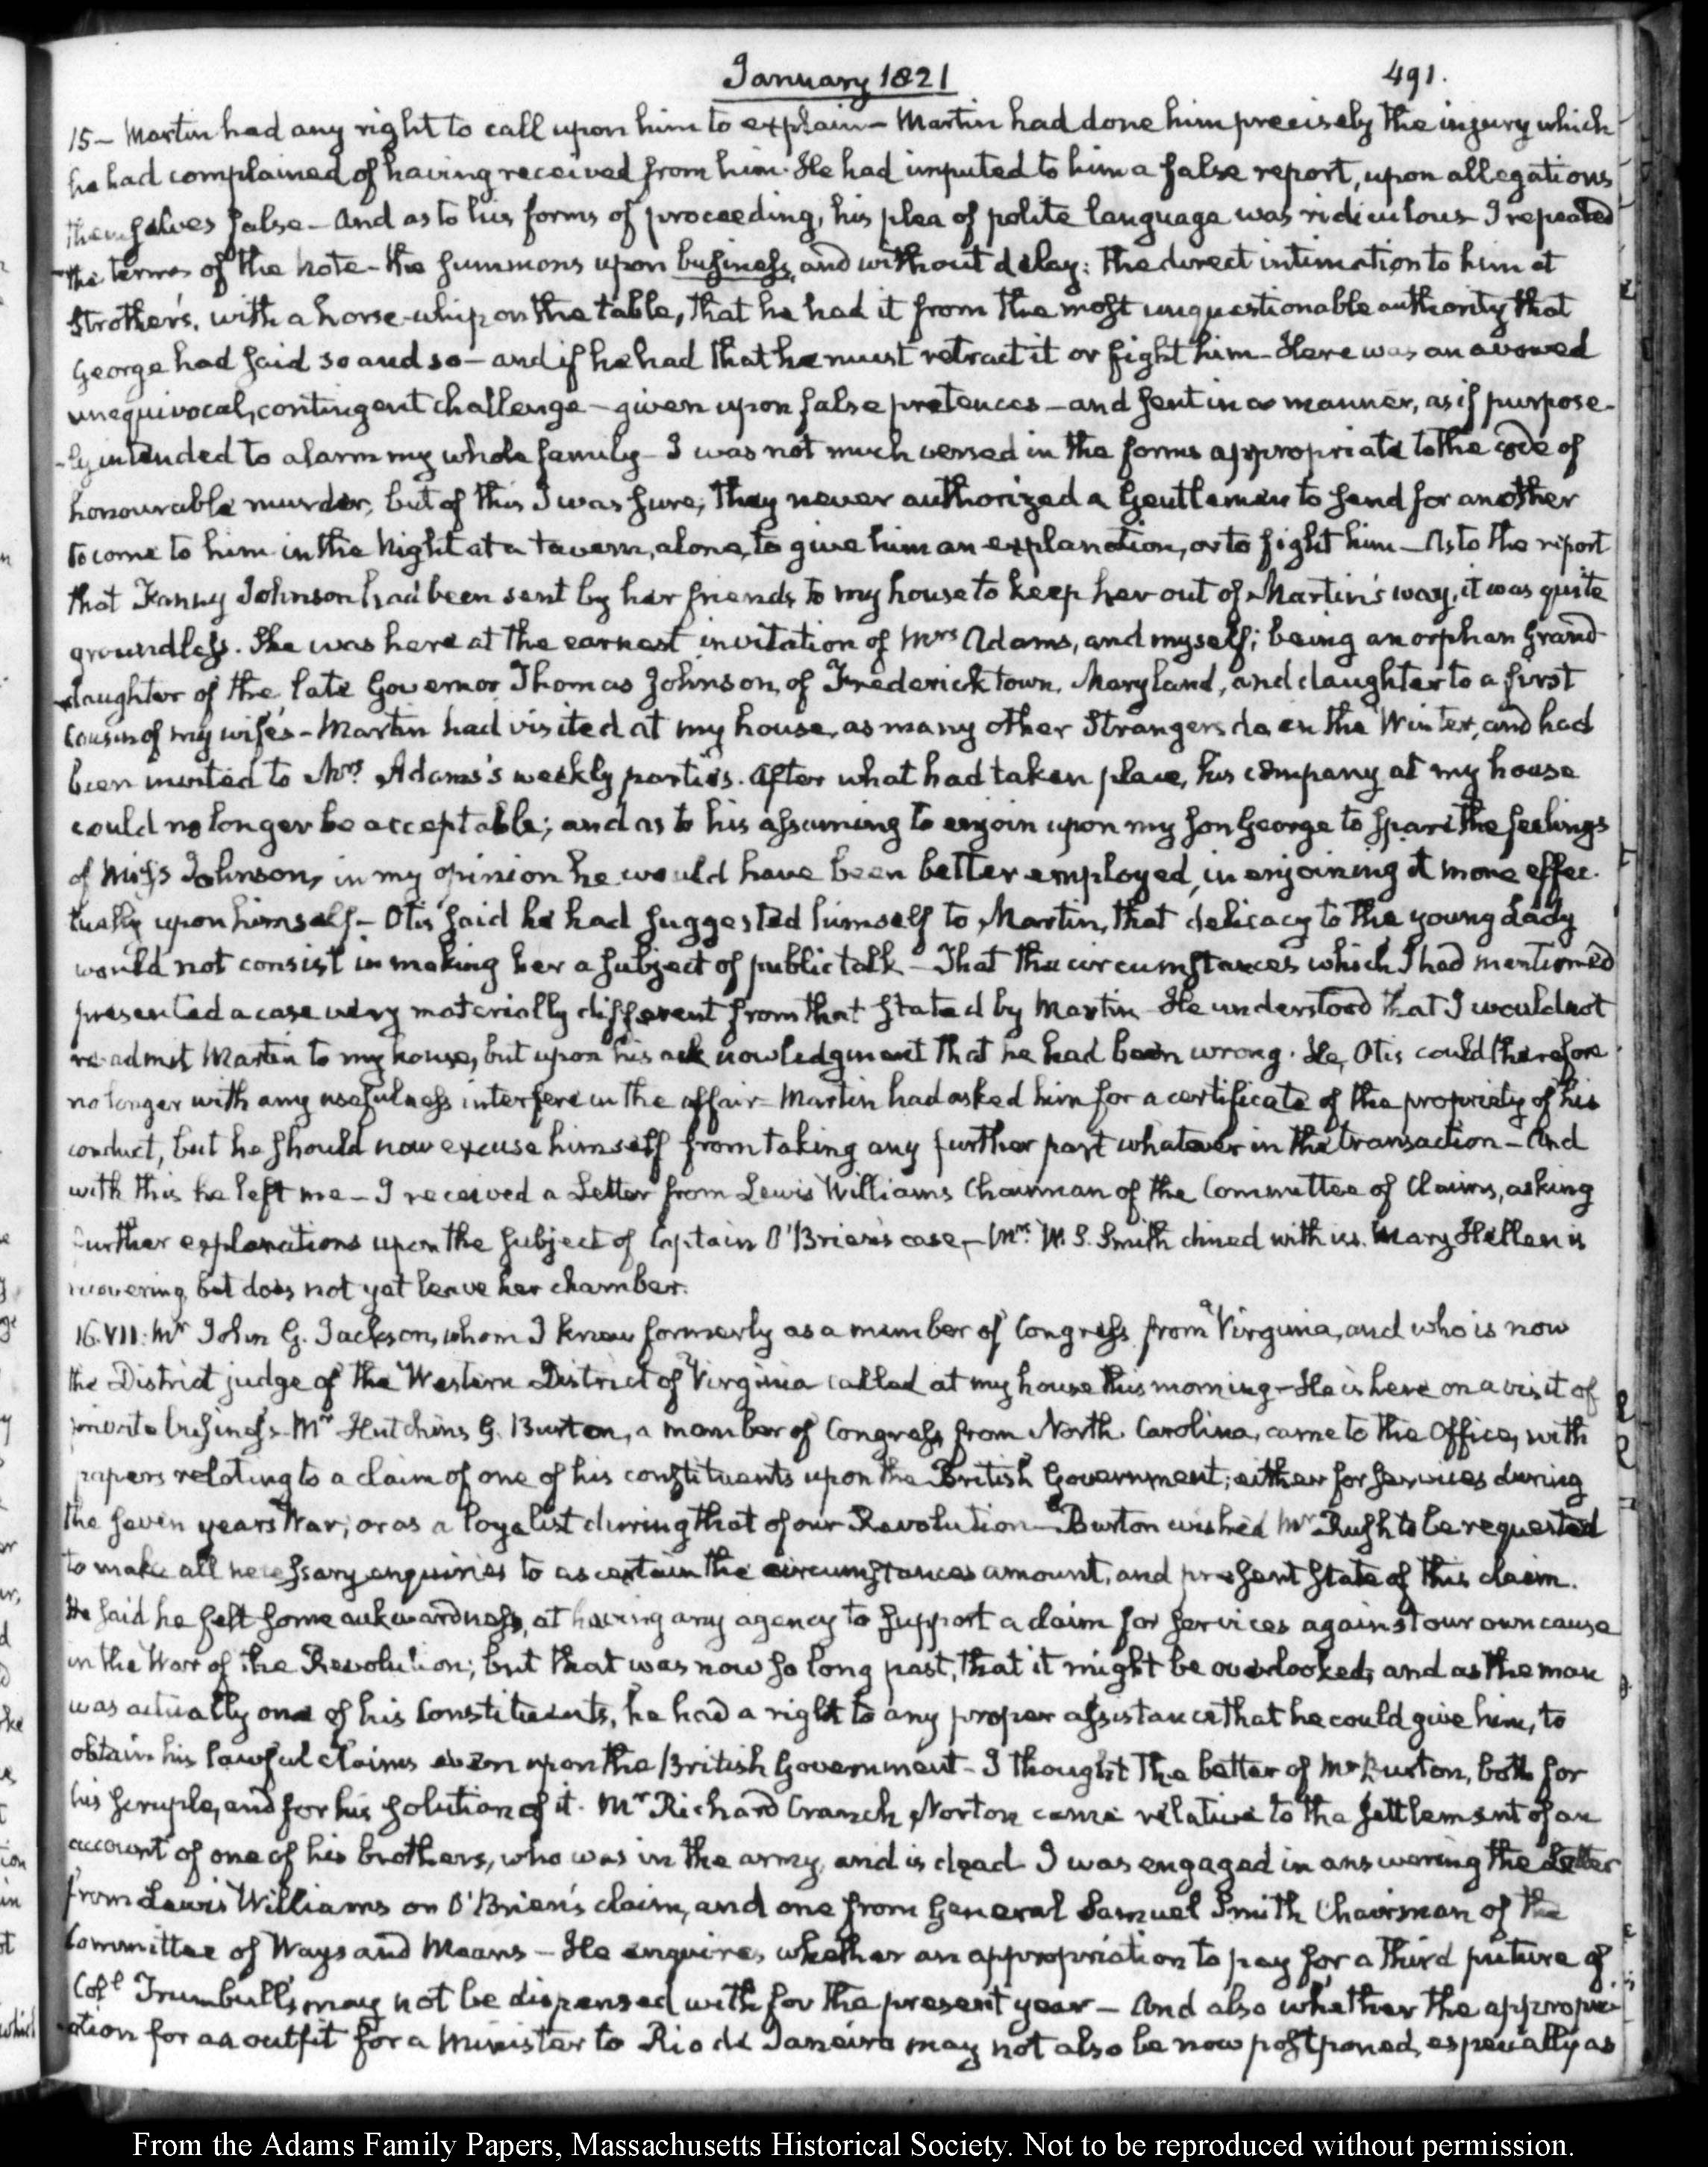 January 1821
491.
15 – Martin had any right to call upon him to explain – Martin had done him precisely the injury which
he had complained of having received from him. He had imputed to him a false report, upon allegations
themselves false – And as to his forms of proceeding, his plea of polite language was ridiculous – I repeated
the terms of the note – the summons upon business, and without delay: the direct intimation to him at
Strother's, with a horse-whip on the table, that he had it from the most unquestionable authority that
George had said so and so – and if he had that he must retract it or fight him – Here was an avowed
unequivocal, contingent challenge – given upon false pretences – and sent in a manner, as if purpose-
-ly intended to alarm my whole family – I was not much versed in the forms appropriate to the code of
honourable murder, but of this I was sure, they never authorized a Gentleman to send for another
to come to him in the Night at a tavern, alone, to give him an explanation, or to fight him – As to the report
that Fanny Johnson had been sent by her friends to my house to keep her out of Martin's way, it was quite
groundless. She was here at the earnest invitation of Mrs Adams, and myself; being an orphan Grand-
-daughter of the late Governor Thomas Johnson, of Frederick town, Maryland, and daughter to a first
Cousin of my wife's – Martin had visited at my house, as many other Strangers do, in the Winter, and had
been invited to Mrs. Adams's weekly parties. After what had taken place, his company at my house
could no longer be acceptable; and as to his assuming to enjoin upon my Son George to spare the feelings
of Miss Johnson, in my opinion he would have been better employed, in enjoining it more effec-
tually upon himself – Otis said he had suggested himself to Martin, that delicacy to the young Lady
would not consist in making her a subject of public talk – That the circumstances which I had mentioned
presented a case very materially different from that stated by Martin – He understood that I would not
re-admit Martin to my house, but upon his acknowledgment that he had been wrong. He, Otis could therefore
no longer with any usefulness interfere in the affair – Martin had asked him for a certificate of the propriety of his
conduct, but he should now excuse himself from taking any further part whatever in the transaction – And
with this he left me – I received a Letter from Lewis Williams Chairman of the Committee of Claims, asking
further explanations upon the subject of Captain O'Brien's case, – Mrs. W. S. Smith dined with us. Mary Hellen is
recovering, but does not yet leave her chamber.
16. VII: Mr John G. Jackson, whom I knew formerly as a member of Congress from Virginia, and who is now
the District judge of the Western District of Virginia called at my house this morning – He is here on a visit of
private business – Mr Hutchins G. Burton, a member of Congress from North Carolina, came to the Office, with
papers relating to a claim of one of his constituents upon the British Government; either for services during
the seven years War; or as a loyalist during that of our Revolution – Burton wished Mr Rush to be requested
to make all necessary enquiries to ascertain the circumstances amount, and present State of this claim.
He said he felt some aukwardness, at having any agency to support a claim for services against our own cause
in the War of the Revolution; but that was now so long past, that it might be overlooked; and as the man
was actually one of his Constituents, he had a right to any proper assistance that he could give him, to
obtain his lawful claims even upon the British Government – I thought the better of Mr Burton, both for
his scruple, and for his solution of it. Mr Richard Cranch Norton came relative to the settlement of an
account of one of his brothers, who was in the army, and is dead – I was engaged in answering the Letter
from Lewis Williams on O'Brien's claim, and one from General Samuel Smith Chairman of the
Committee of Ways and Means – He enquires, whether an appropriation to pay for a third picture of
Coll Trumbull's may not be dispensed with for the present year – And also whether the appropri-
-ation for an outfit for a Minister to Rio de Janeiro may not also be now postponed, especially as
From the Adams Family Papers, Massachusetts Historical Society. Not to be reproduced without permission.